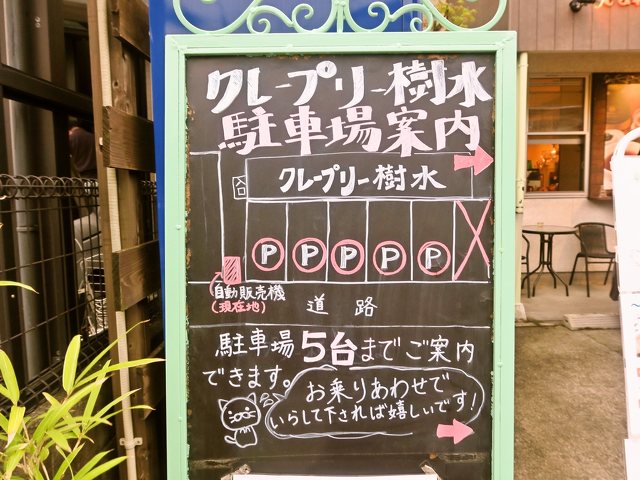 クレープリー樹水
駐車場案内
入口
クレープリー樹水
P P P P P
自動販売機
(現在地)
道路
駐車場5台までご案内
できます。
お乗りあわせで
いらして下されば嬉しいです!